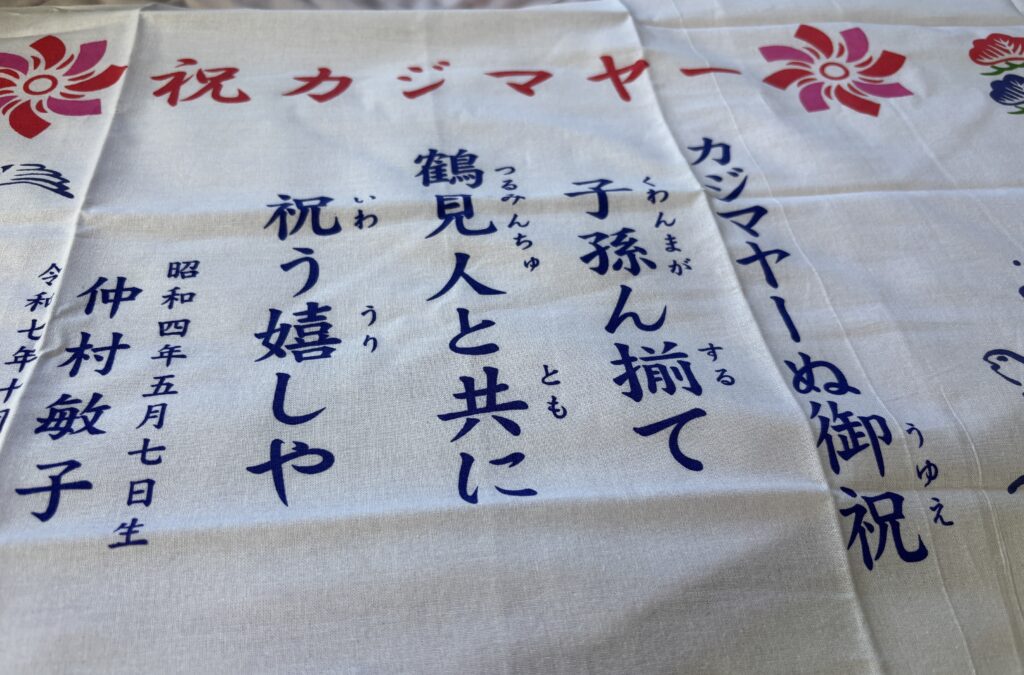 祝カジマヤー
カジマヤーぬ御祝
うゆえ
子孫ん揃て
くわんまが
する
鶴見人と共に
つるみんちゅ
とも
祝う嬉しや
いわ
うり
昭和四年五月七日生
仲村敏子
令和七年十月